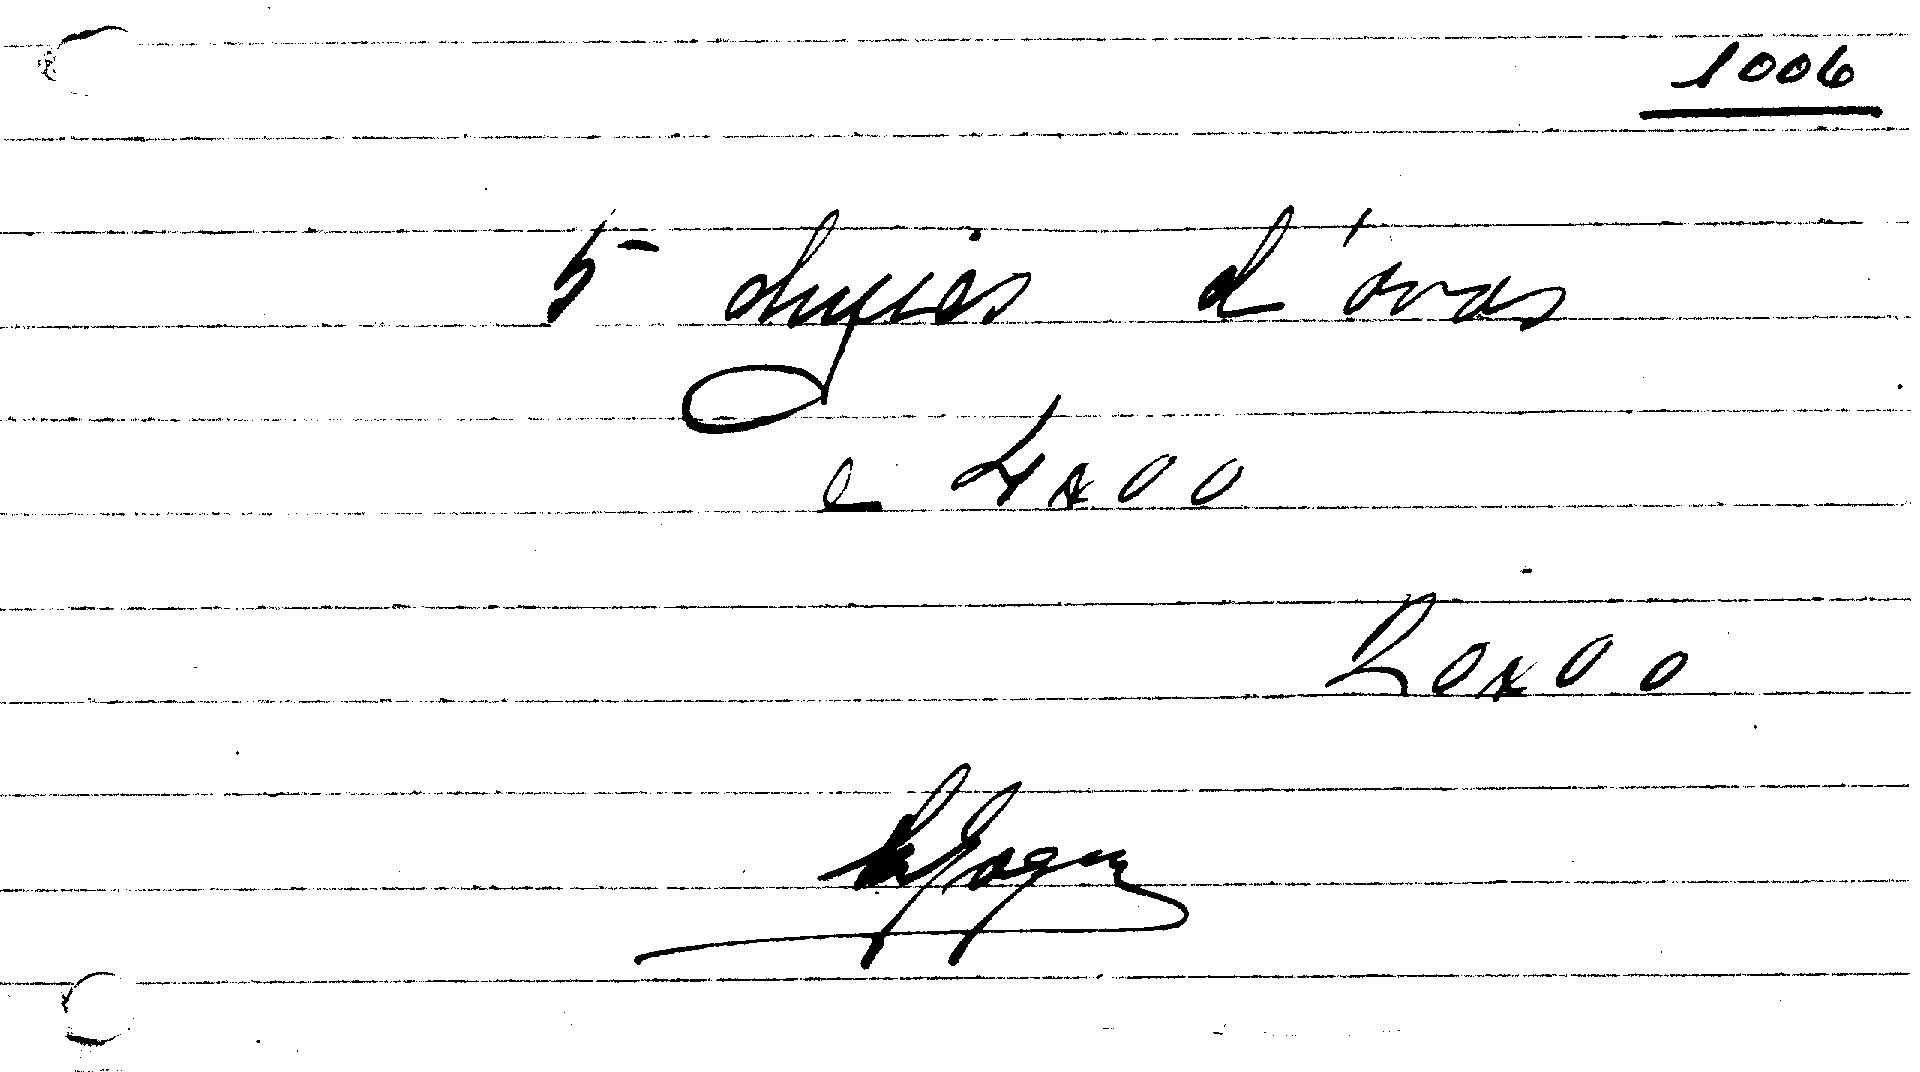 1006
5 duzias d'ovos
a 4x00
20x00